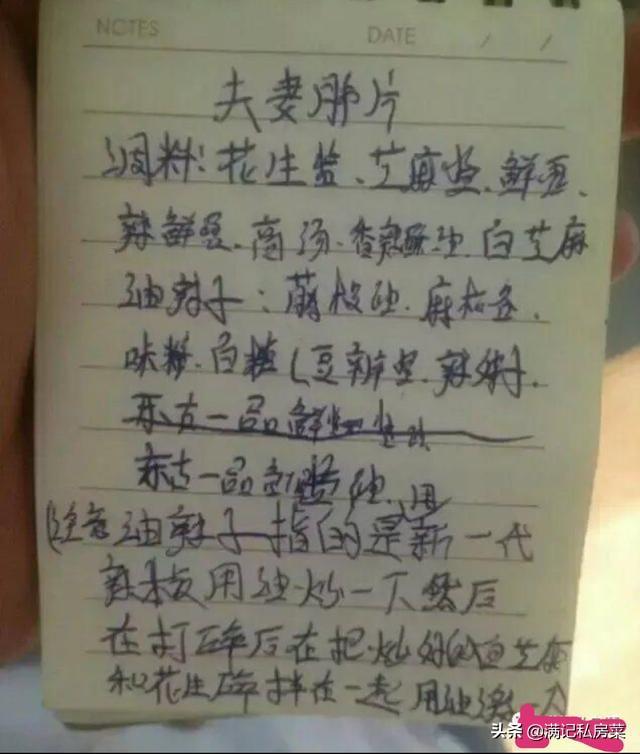 NOTES DATE / /
夫妻肺片
调料：花生酱、芝麻酱、鲜
辣鲜露、高汤、香 油、白芝麻
油辣子：油、麻
味精、白糖（豆瓣、辣
东古一品鲜
东古一品鲜酱油
用
油辣子指的是新一代
辣椒用油炒一下然后
在打碎后在把炒好的白芝麻
和花生碎拌在一起用油
头条 @满记私房菜